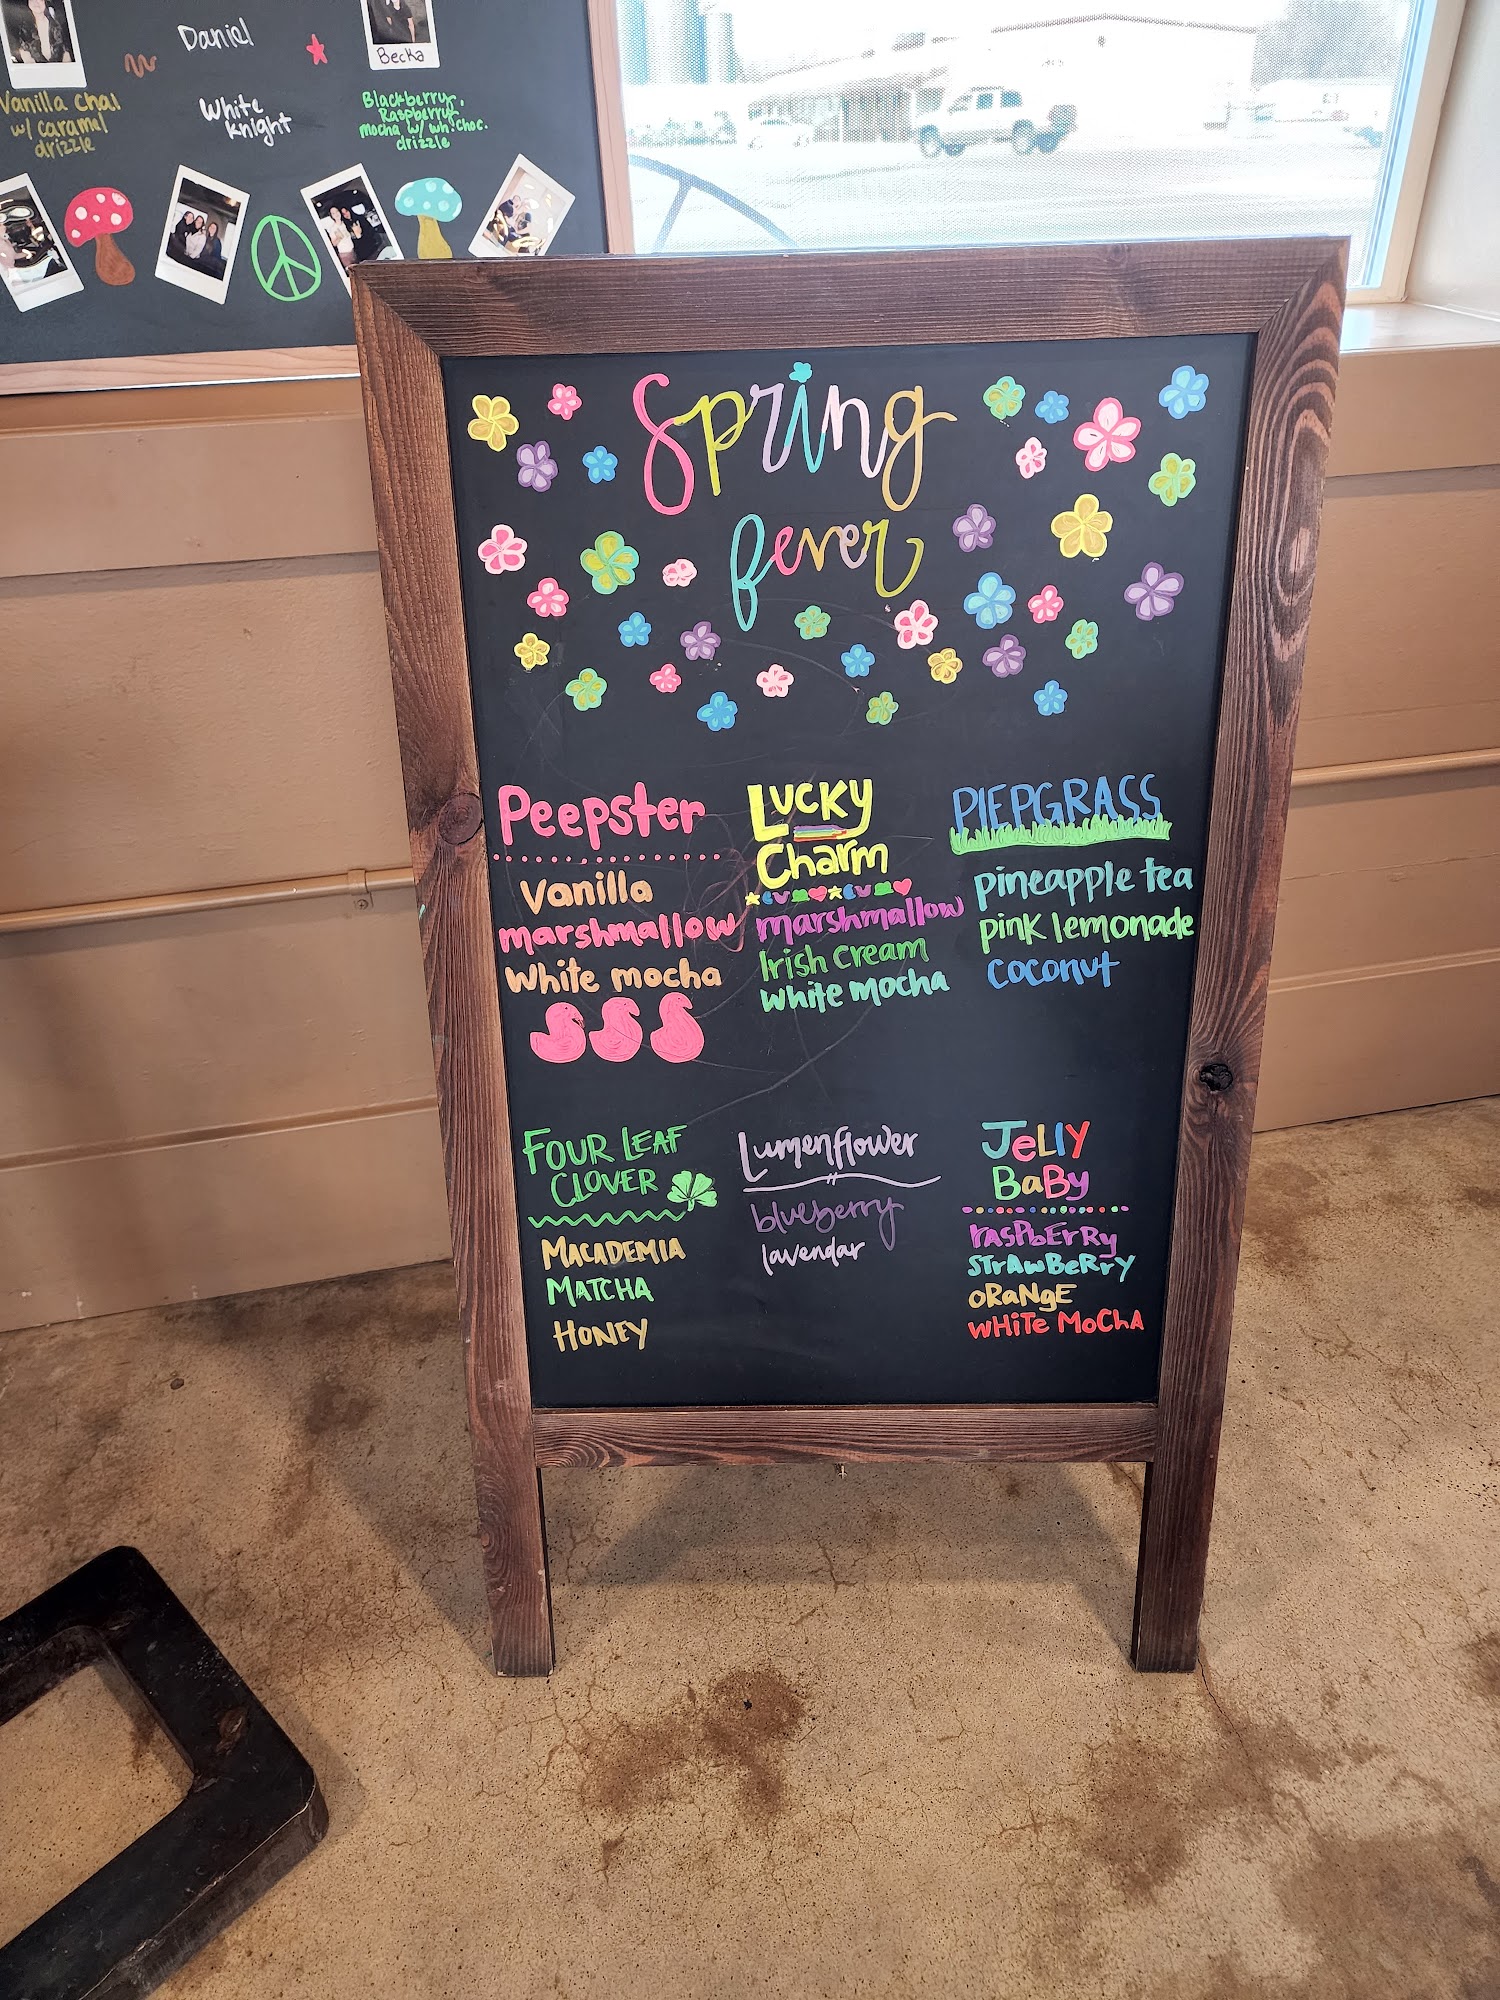 Daniel
Becka
Vanilla Chai
w/ caramel
drizzle
White
Knight
Blackberry,
Raspberry
mocha w/ wh. choc.
drizzle
Spring
fever
Peepster
Vanilla
marshmallow
White mocha
Lucky
Charm
marshmallow
Irish Cream
White Mocha
PIEPGRASS
pineapple tea
pink lemonade
coconut
FOUR LEAF
CLOVER
MACADEMIA
MATCHA
HONEY
Lumenflower
blueberry
lavendar
JeLLY
BaBy
rASPbErRy
STrAwBeRrY
oRaNgE
wHiTe MoChA